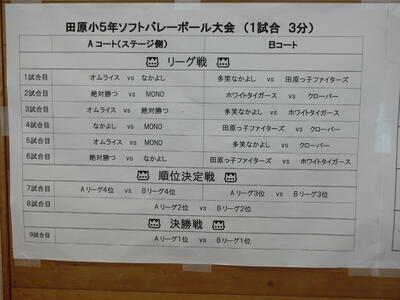 田原小5年ソフトバレーボール大会 （1試合 3分）
Aコート(ステージ側) Bコート
リーグ戦
1試合目 オムライス vs なかよし 多笑なかよし vs 田原っ子ファイターズ
2試合目 絶対勝つ vs MONO ホワイトタイガース vs クローバー
3試合目 オムライス vs 絶対勝つ 多笑なかよし vs ホワイトタイガース
4試合目 なかよし vs MONO 田原っ子ファイターズ vs クローバー
5試合目 オムライス vs MONO 多笑なかよし vs クローバー
6試合目 絶対勝つ vs なかよし 田原っ子ファイターズ vs ホワイトタイガース
順位決定戦
7試合目 Aリーグ4位 vs Bリーグ4位 Aリーグ3位 vs Bリーグ3位
8試合目 Aリーグ2位 vs Bリーグ2位
決勝戦
9試合目 Aリーグ1位 vs Bリーグ1位